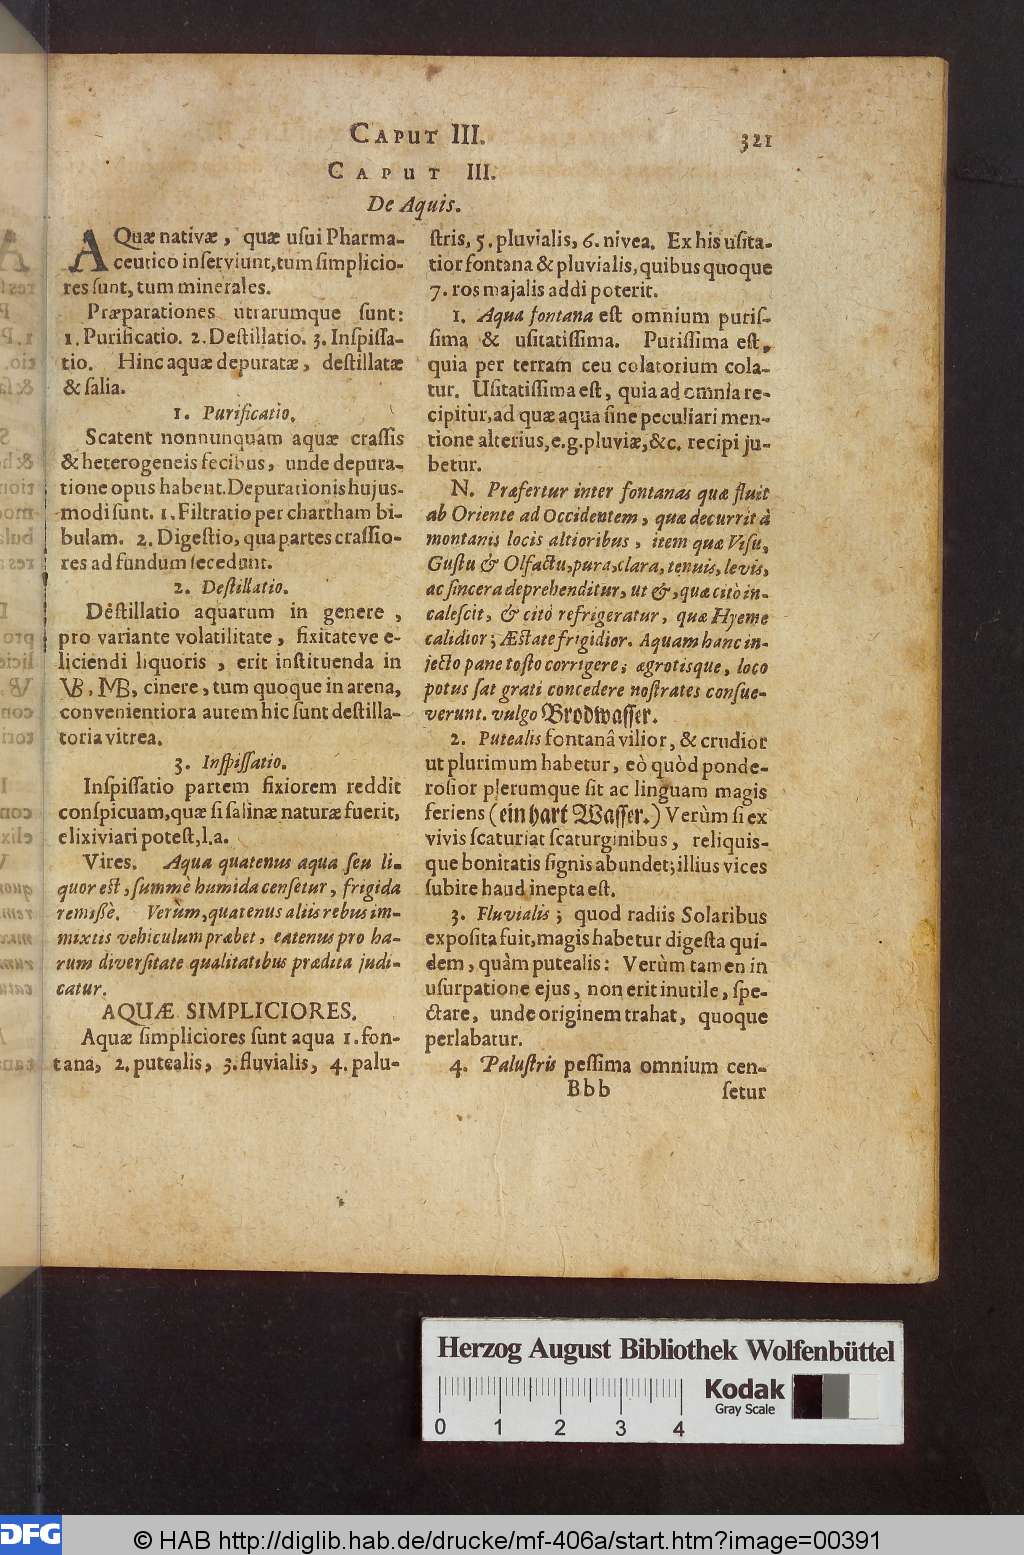 CAPUT III. 321
CAPUT III.
De Aquis.
AQuæ nativæ, quæ usui Pharma-
ceutico inserviunt, tum simplicio-
res sunt, tum minerales.
Præparationes utrarumque sunt:
1. Purificatio. 2. Destillatio. 3. Inspissa-
tio. Hinc aquæ depuratæ, destillatæ
& salia.
1. Purificatio.
Scatent nonnunquam aquæ crassis
& heterogeneis fecibus, unde depura-
tione opus habent. Depurationis hujus-
modi sunt. 1. Filtratio per chartham bi-
bulam. 2. Digestio, qua partes crassio-
res ad fundum secedunt.
2. Destillatio.
Destillatio aquarum in genere,
pro variante volatilitate, fixitateve e-
liciendi liquoris, erit instituenda in
VB, MB, cinere, tum quoque in arena,
convenientiora autem hic sunt destilla-
toria vitrea.
3. Inspissatio.
Inspissatio partem fixiorem reddit
conspicuam, quæ si salinæ naturæ fuerit,
elixiviari potest, l.a.
Vires. Aqua quatenus aqua seu li-
quor est, summè humida censetur, frigida
remissè. Verùm, quatenus aliis rebus im-
mixtis vehiculum præbet, eatenus pro ha-
rum diversitate qualitatibus prædita judi-
catur.
AQUÆ SIMPLICIORES.
Aquæ simpliciores sunt aqua 1. fon-
tana, 2. putealis, 3. fluvialis, 4. palu-
stris, 5. pluvialis, 6. nivea. Ex his usita-
tior fontana & pluvialis, quibus quoque
7. ros majalis addi poterit.
1. Aqua fontana est omnium puris-
sima & usitatissima. Putissima est,
quia per terram ceu colatorium cola-
tur. Usitatissima est, quia ad omnia re-
cipitur, ad quæ aqua sine peculiari men-
tione alterius, e.g. pluviæ, &c. recipi ju-
betur.
N. Præfertur inter fontanas quæ fluit
ab Oriente ad Occidentem, quæ decurrit à
montanis locis altioribus, item quæ Visu,
Gustu & Olfactu, pura, clara, tenuis, levis,
ac sincera deprehenditur, ut &, quæ citò in-
calescit, & citò refrigeratur, quæ Hyeme
calidior; Æstate frigidior. Aquam hanc in-
jecto pane tosto corrigere; ægrotisque, loco
potus sat grati concedere nostrates consue-
verunt. vulgo Brodwasser.
2. Putealis fontanâ vilior, & crudior
ut plurimum habetur, eò quòd ponde-
rosior plerumque sit ac linguam magis
feriens (ein hart Wasser.) Verùm si ex
vivis scaturiat scaturginibus, reliquis-
que bonitatis signis abundet; illius vices
subire haud inepta est.
3. Fluvialis; quod radiis Solaribus
exposita fuit, magis habetur digesta qui-
dem, quàm putealis: Verùm tamen in
usurpatione ejus, non erit inutile, spe-
ctare, unde originem trahat, quoque
perlabatur.
4. Palustris pessima omnium cen-
Bbb setur
Herzog August Bibliothek Wolfenbüttel
Kodak
Gray Scale
0 1 2 3 4
DFG © HAB http://diglib.hab.de/drucke/mf-406a/start.htm?image=00391